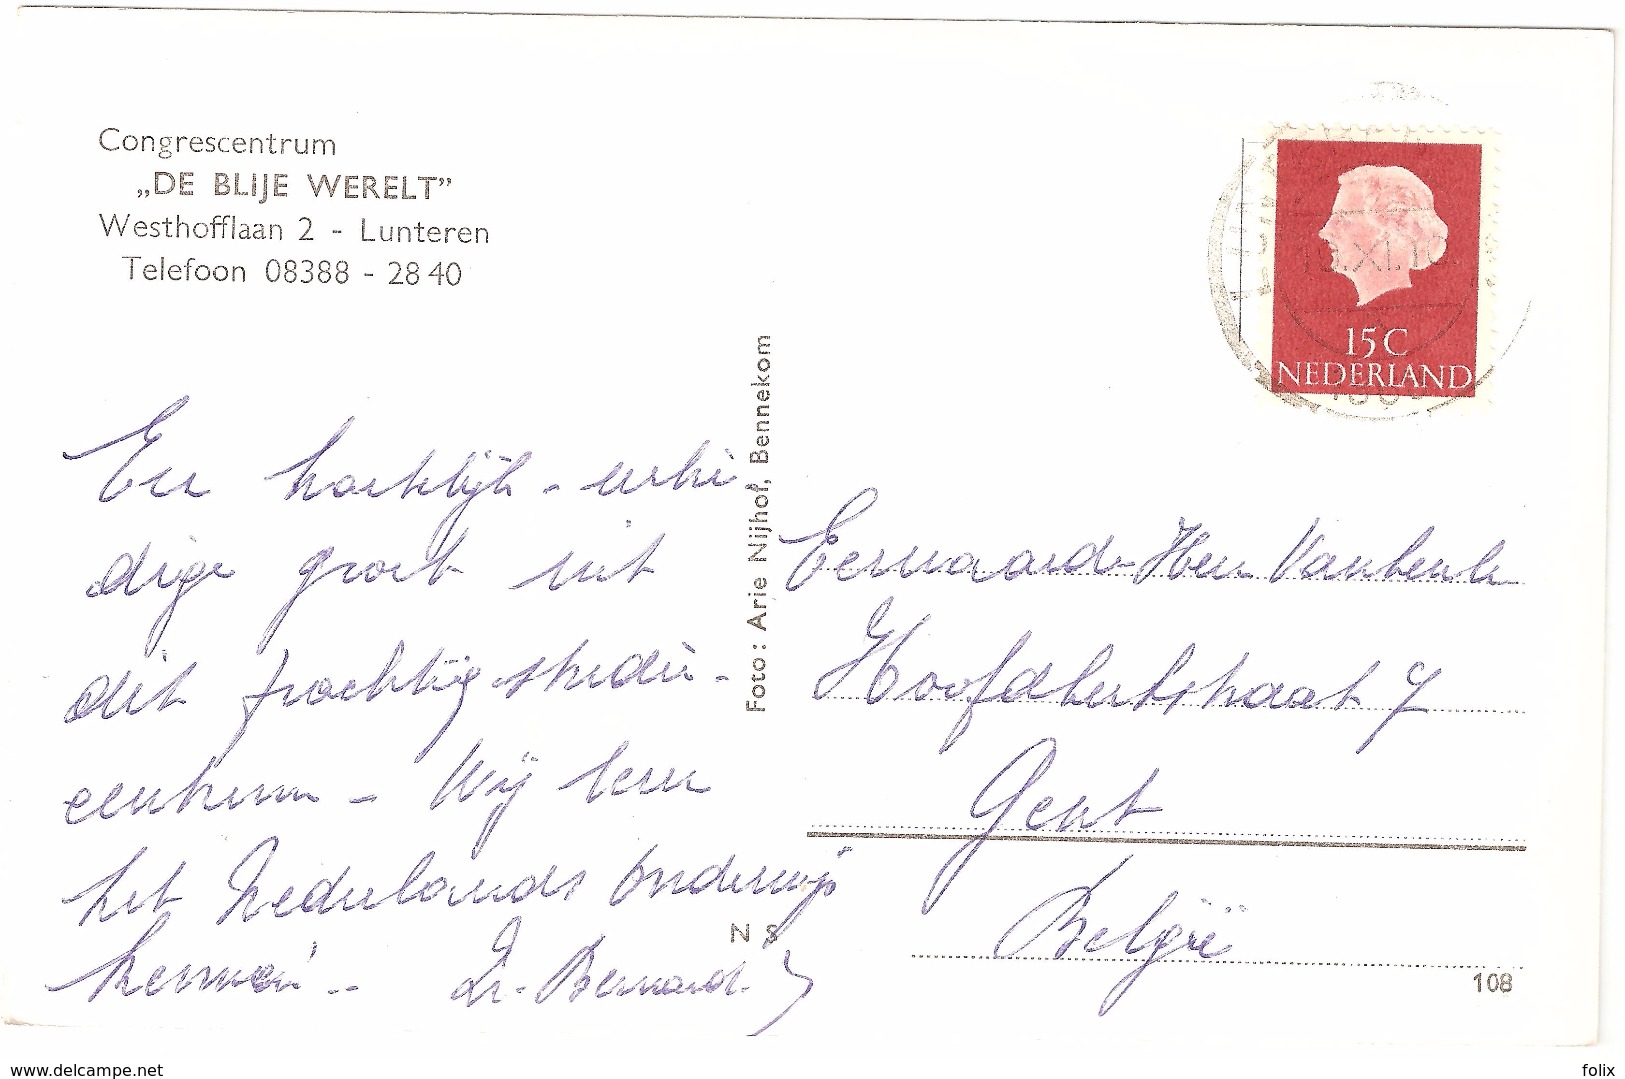 Congrescentrum
„DE BLIJE WERELT”
Westhofflaan 2 - Lunteren
Telefoon 08388 - 28 40
15 C
NEDERLAND
Foto: Arie Nijhof, Bennekom
Een hartelijk - eerbie
dige groet uit
dit prachtig studie-
centrum - Wij leren
het Nederlands onderwijs
kennen! .. Br. Bernard.
Eerwaarde Heer
Hoofdkerkstraat 7
Gent
België
N S
108
www.delcampe.net
folix